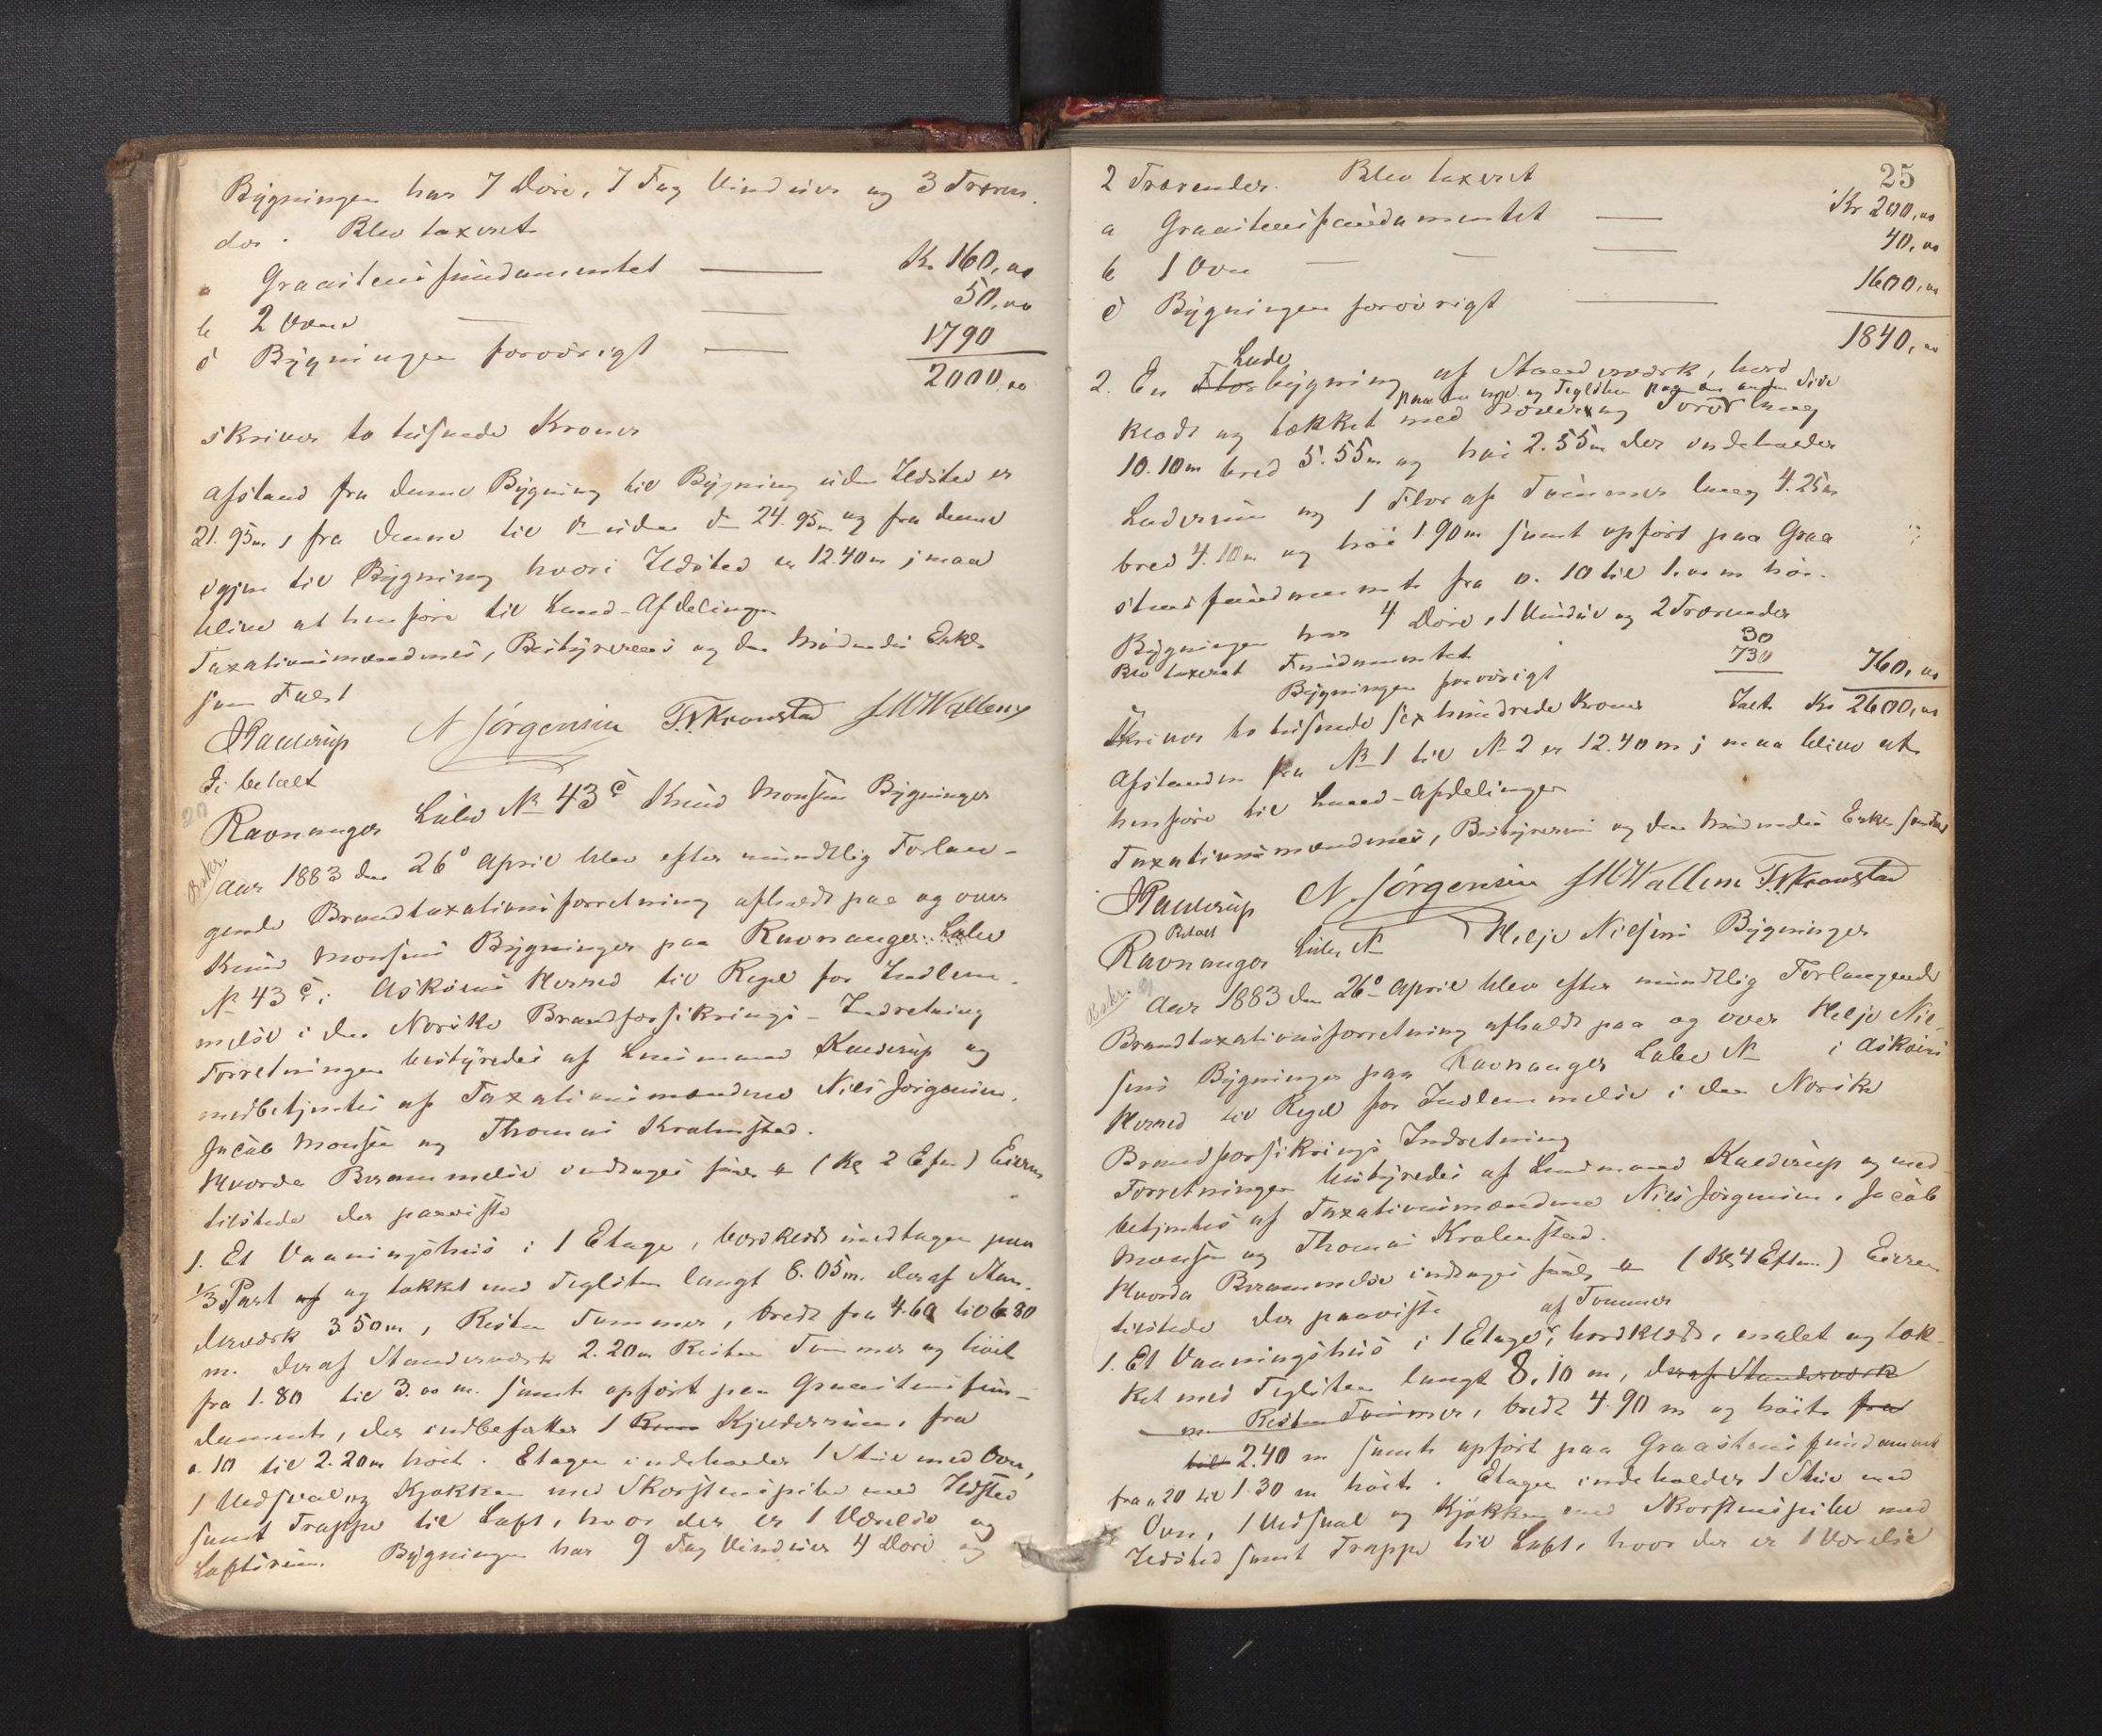 Bygningen har 7 Döre, 7 Fag Vinduer og 3 Træren-
der. Blev taxeret
a Graastensfundamentet Kr 160,00
b 2 Ovne 50,00
c Bygningen forövrigt 1790
2000,00
skriver to tusinde Kroner
Afstand fra denne Bygning til Bygning uden Ildsted er
21.95m, fra denne til do uden do 24.95m og fra denne
igjen til Bygning hvori Ildsted er 12.40m; maa
blive at henföre til Land-Afdelingen
Taxationsmændenes, Bestyrerens og den
som Fuldt
Kaldrup N Jörgensen T. Kronstad J M Wallem
Ei betalt
20
Ravnanger Löbe No 43 c Knud Monsens Bygninger
Aar 1883 den 26de April blev efter mundtlig Forlan-
gende Brandtaxationsforretning afholdt paa og over
Knud Monsens Bygninger paa Ravnanger Löbe
No 43 c i Asköens Herred til Regel for Indlem-
melse i den Norske Brandforsikrings-Indretning
Forretningen bestyredes af Lensmand Kaldrup og
medbetjentes af Taxationsmændene Niels Jörgensen,
Jacob Monsen og Thomas Krohnstad.
Hvorda Berammelse indtages (Kl 2 Efm) Eieren
tilstede der paaviste
1. Et Vaaningshus i 1 Etage, bordklædt undtagen paa
1/3 Part af og tækket med Tegelsten langt 8.05m. deraf Stan-
derværk 3.50m, Resten Tømmer, bredt fra 4.60 til 6.80
m. deraf Standerværk 2.20m Resten Tømmer og höit
fra 1.80 til 3.00 m. samt opfört paa Graastensfun-
dament, der indbefatter 1 Rum Kjælderrum, fra
0.10 til 2.20m höit. Etagen indeholder 1 Stue med Ovn,
1 Vedsval og Kjökken med Skorstenspibe med Ildsted
samt Trappe til Loft, hvor der er 1 Værelse og
Loftsrum. Bygningen har 9 Fag Vinduer 4 Döre og
25
2 Trærender. Blev taxeret
a Graastensfundamentet Kr 200,00
b 1 Ovn 40,00
c Bygningen forövrigt 1600,00
1840,00
Lade
2. En Flor bygning af Standerværk, bord
paa en side og Teglsten paa den anden Side
klædt og tækket med Torv lang
10.10m bred 5.55m og höi 2.55m der indeholder
Laderum og 1 Flor af Tömmer lang 4.25m
bred 4.10m og höi 1.90m samt opfört paa Graa
stensfundament fra 0.10 til 1.00 m höi.
Bygningen har 4 Döre, 1 Vindue og 2 Trærender
Blev taxeret Fundamentet 30
Bygningen forövrigt 730 760,00
Skriver to tusinde sex hundrede Kroner Ialt Kr 2600,00
Afstanden fra No 1 til No 2 er 12.40 m; maa blive at
henföre til Land-Afdelingen
Taxationsmændenes, Bestyrerens og den
Kaldrup N. Jörgensen J M Wallem T. Kronstad
Betalt
Ravnanger Löbe No Helje Nilsens Bygninger
Aar 1883 den 26de April blev efter mundtlig Forlangende
Brandtaxationsforretning afholdt paa og over Helje Nil-
sens Bygninger paa Ravnanger Löbe No i Asköens
Herred til Regel for Indlemmelse i den Norske
Brandforsikrings Indretning
Forretningen bestyredes af Lensmand Kaldrup og med-
betjentes af Taxationsmændene Niels Jörgensen, Jacob
Monsen og Thomas Krohnstad.
Hvorda Berammelse indtages (Kl 4 Eftm.) Eieren
tilstede der paaviste af Tømmer
1. Et Vaaningshus i 1 Etage, bordklædt, malet og tæk-
ket med Teglsten langt 8,10 m, deraf Standerværk
m Resten Tømmer, bredt 4.90 m og höit fra
til 2.40 m samt opfört paa Graastensfundament
fra 0.20 til 1.30 m höit. Etagen indeholder 1 Stue med
Ovn, 1 Vedsval og Kjökken med Skorstenspibe med
Ildsted samt Trappe til Loft, hvor der er 1 Værelse